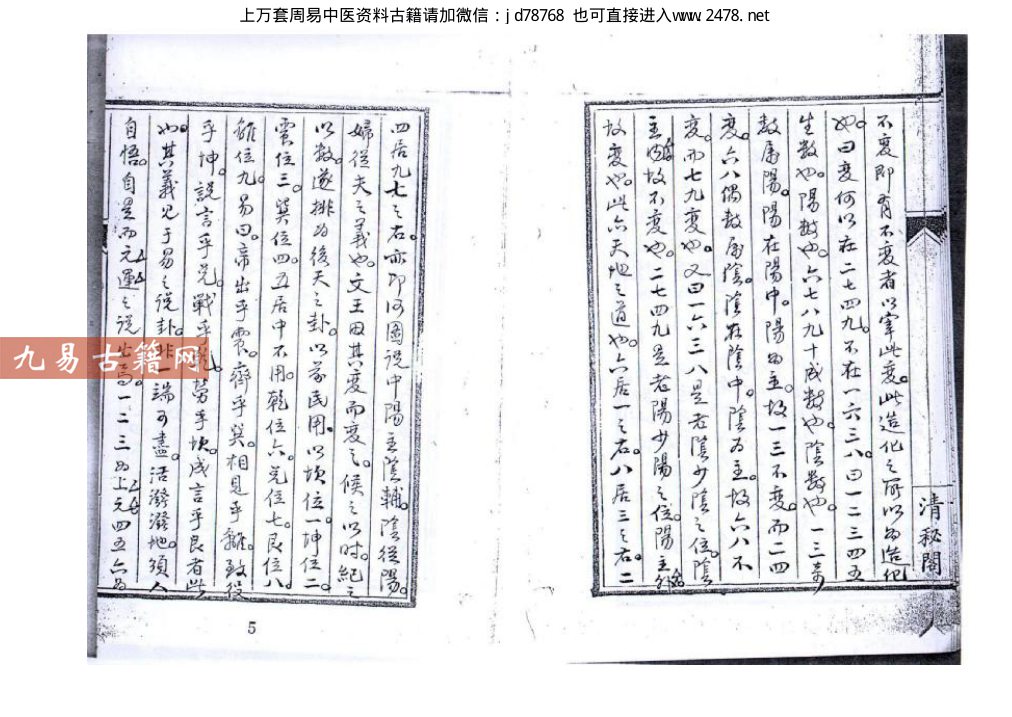 上万套周易中医资料古籍请加微信：jd78768 也可直接进入www.2478.net
不变即有不变者以宰此变。此造化之所以为造化
也。曰变何以在二七四九。不在一六三八。曰一二三四五
生数也。陽数也。六七八九十成数也。陰数也。一三奇
数屬陽。陽在陽中。陽為主。故一三不变。而二四
变。六八偶数屬陰。陰在陰中。陰为主。故六八不
变。而七九变也。又曰一六三八是老陰少陰之位。陰
主内。故不变也。二七四九是老陽少陽之位。陽主外。
故变也。此六天地之道也。六居一之右。八居三之右。二
清秘閣
四居九七之右。亦即河圖说中陽主陰輔。陰從陽。
婦從夫之義也。文王因其变而变之。候之以时。紀之
以数。遂排为後天之卦。以前民用。以坎位一。坤位二。
震位三。巽位四。五居中不用。乾位六。兑位七。艮位八。
離位九。易曰。帝出乎震。齊乎巽。相見乎離。致役
乎坤。説言乎兑。戰乎乾。勞乎坎。成言乎艮。者此
也。其義见于易之说卦。非一端可盡。活潑潑地。須人
自悟。自是而元運之说出焉。一二三为上元四五六为
九易古籍网
5